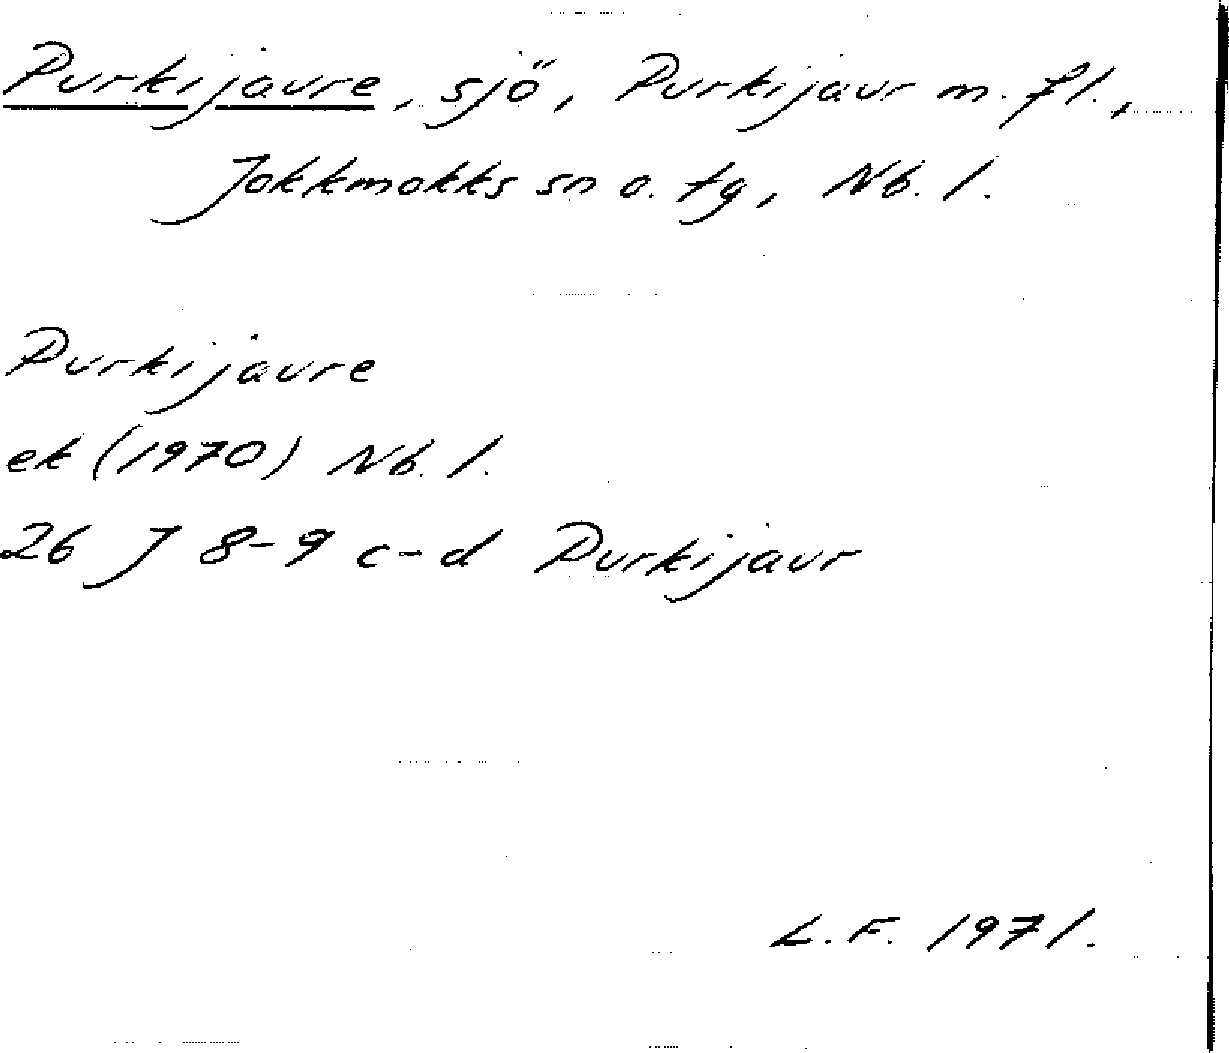 Purkijaure, sjö, Purkijaur m. fl.,
Jokkmokks sn o. tg, Nb. l.
Purkijaure
ek (1970) Nb. l.
26 J 8-9 c-d Purkijaur
L. F. 1971.